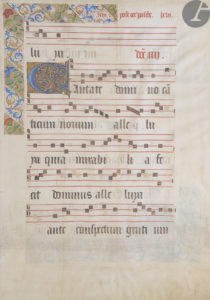 lu ya
Cantate domi no cã
ticum novum alle lu
ya quia mirabi li a fe
cit dominus alle luya
ante conspectum genti um